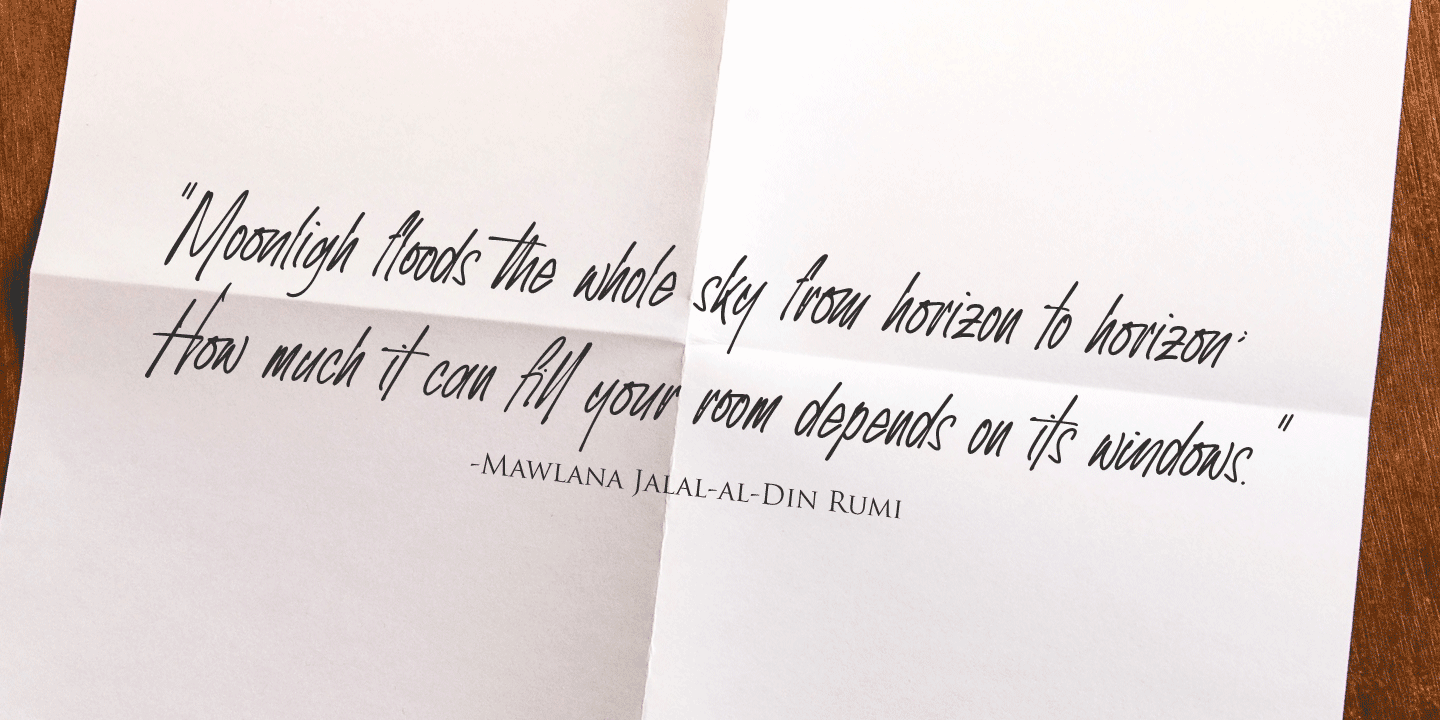 "Moonligh floods the whole sky from horizon to horizon;
How much it can fill your room depends on its windows."
-Mawlana Jalal-al-Din Rumi